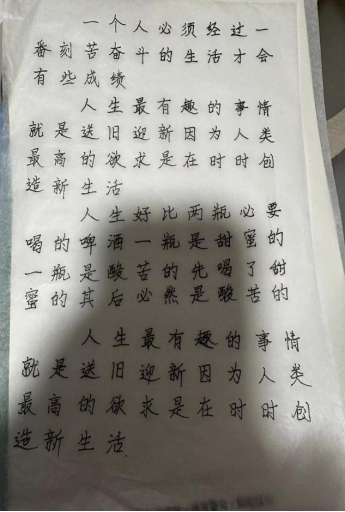 一个人必须经过一
番刻苦奋斗的生活才会
有些成绩
人生最有趣的事情
就是送旧迎新因为人类
最高的欲求是在时时创
造新生活
人生好比两瓶必要
喝的啤酒一瓶是甜蜜的
一瓶是酸苦的先喝了甜
蜜的其后必然是酸苦的
人生最有趣的事情
就是送旧迎新因为人类
最高的欲求是在时时创
造新生活